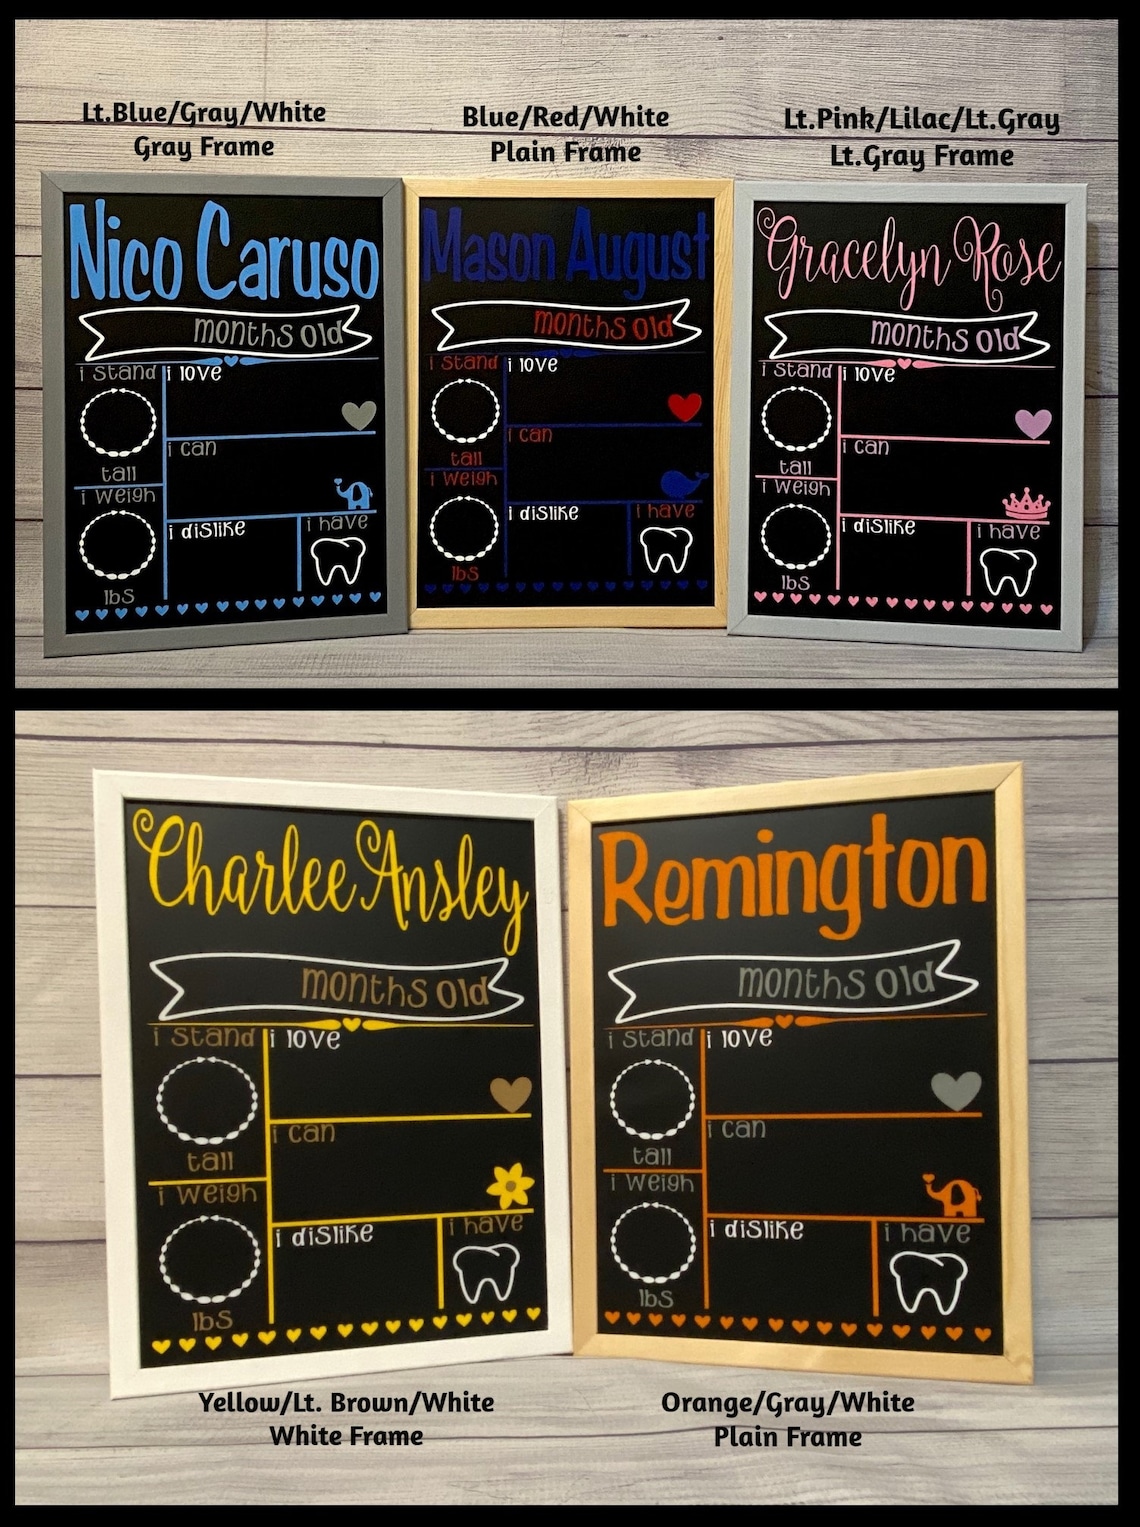 Lt.Blue/Gray/White
Gray Frame
Blue/Red/White
Plain Frame
Lt.Pink/Lilac/Lt.Gray
Lt.Gray Frame
Nico Caruso
months old
i stand
i love
i can
tall
i weigh
i dislike
i have
lbs
Mason August
months old
i stand
i love
i can
tall
i weigh
i dislike
i have
lbs
Gracelyn Rose
months old
i stand
i love
i can
tall
i weigh
i dislike
i have
lbs
Charlee Ansley
months old
i stand
i love
i can
tall
i weigh
i dislike
i have
lbs
Remington
months old
i stand
i love
i can
tall
i weigh
i dislike
i have
lbs
Yellow/Lt. Brown/White
White Frame
Orange/Gray/White
Plain Frame